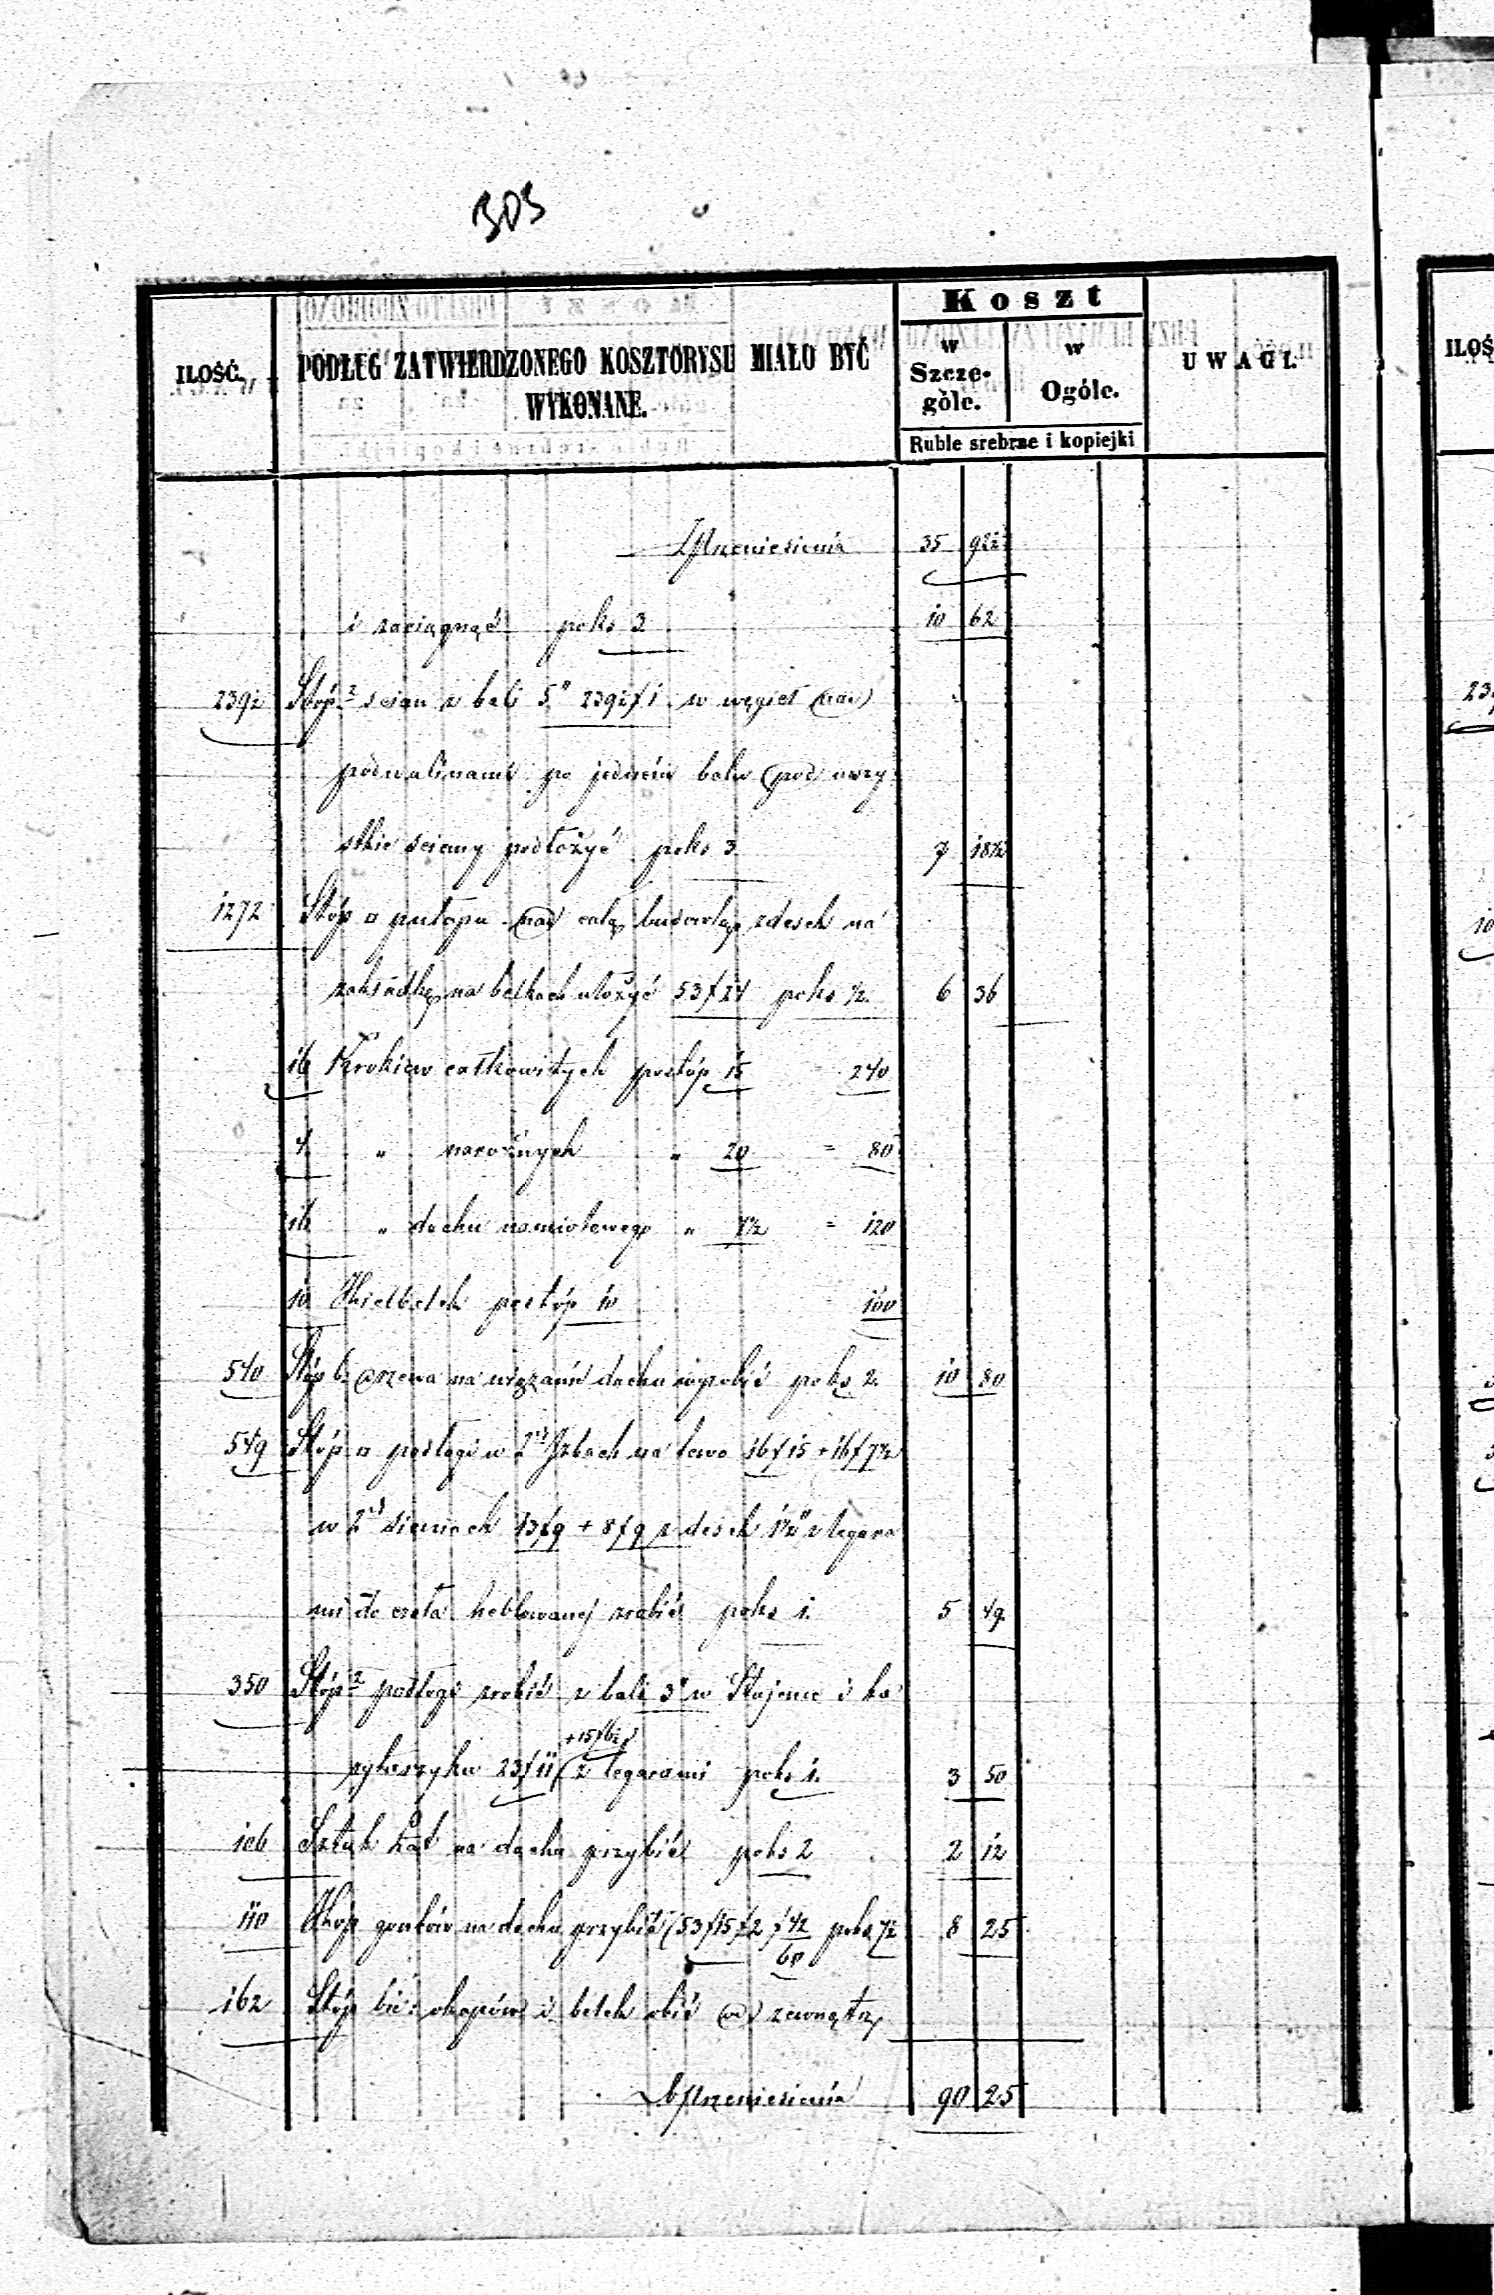 303
ILOŚĆ.
PODŁUG ZATWIERDZONEGO KOSZTORYSU MIAŁO BYĆ
WYKONANE.
Koszt
w Szcze-góle.
w Ogóle.
Ruble srebrne i kopiejki
UWAGI.
ILOŚ
Z Przeniesienia 35 92½
i zaciągnąć po ks 3 10 62
239½ Stóp² ścian z bali 5" 239½/1 w węgieł nad
podwalinami po jednéu balu pod wszy
stkie ściany podłożyć po ks 3. 7 18½
1272 Stóp □ pułapu nad całą budowlą z desek na
zakładkę na belkach ułożyć 53/24 po ks ½. 6 36
16 Krokiew całkowitych po stóp 15 = 240
4 " narożnych " 20 = 80
16 " dachu namiotowego " 7½ = 120
10 po stóp 10 100
540 Stóp b. drzewa na wiązanie dachu wyrobić po ks 2. 10 80
549 Stóp □ podłogi w 2ch Izbach na lewo 16/15 + 16/7½
w 2ch sieniach 13/9 + 8/9 z desek 1½" z legara
mi do czoła heblowanej zrobić po ks 1. 5 49
350 Stóp² podłogi zrobić z bali 3" w Stajence i ko
rytarzyku 23/11 z legarami po ks 1. 3 50
106 Sztuk Łat na dachu przybić po ks 2 2 12
110 Kóp gontów na dachu przybić (53/15/2) 60 po ks 7½ 8 25
162 Stóp bie: okapów i belek obić od zewnątrz
Do Przeniesienia 90 25